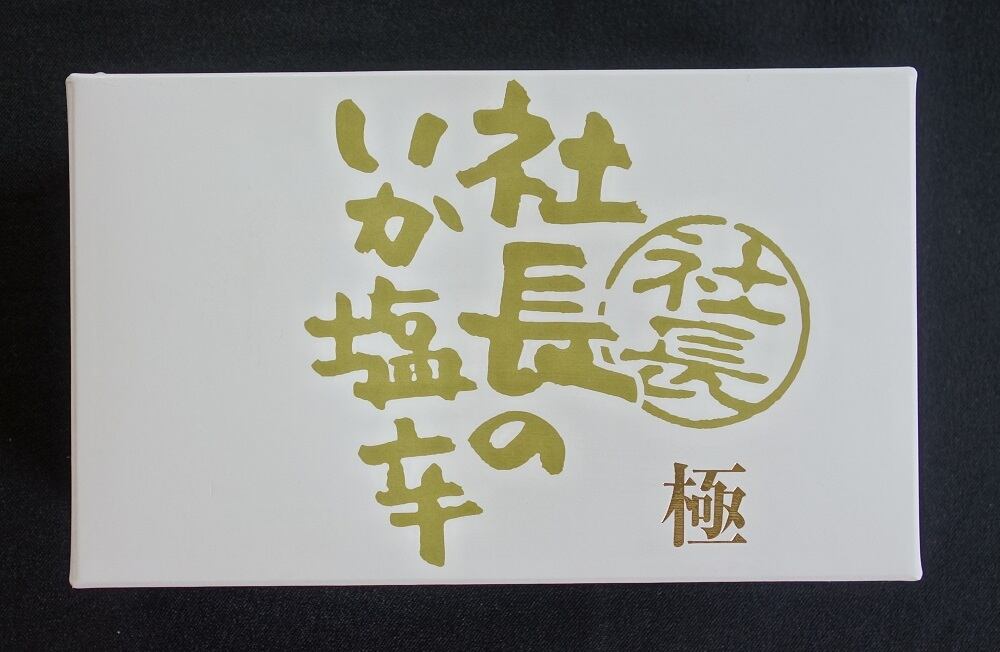 社長の
いか塩辛
社長
極